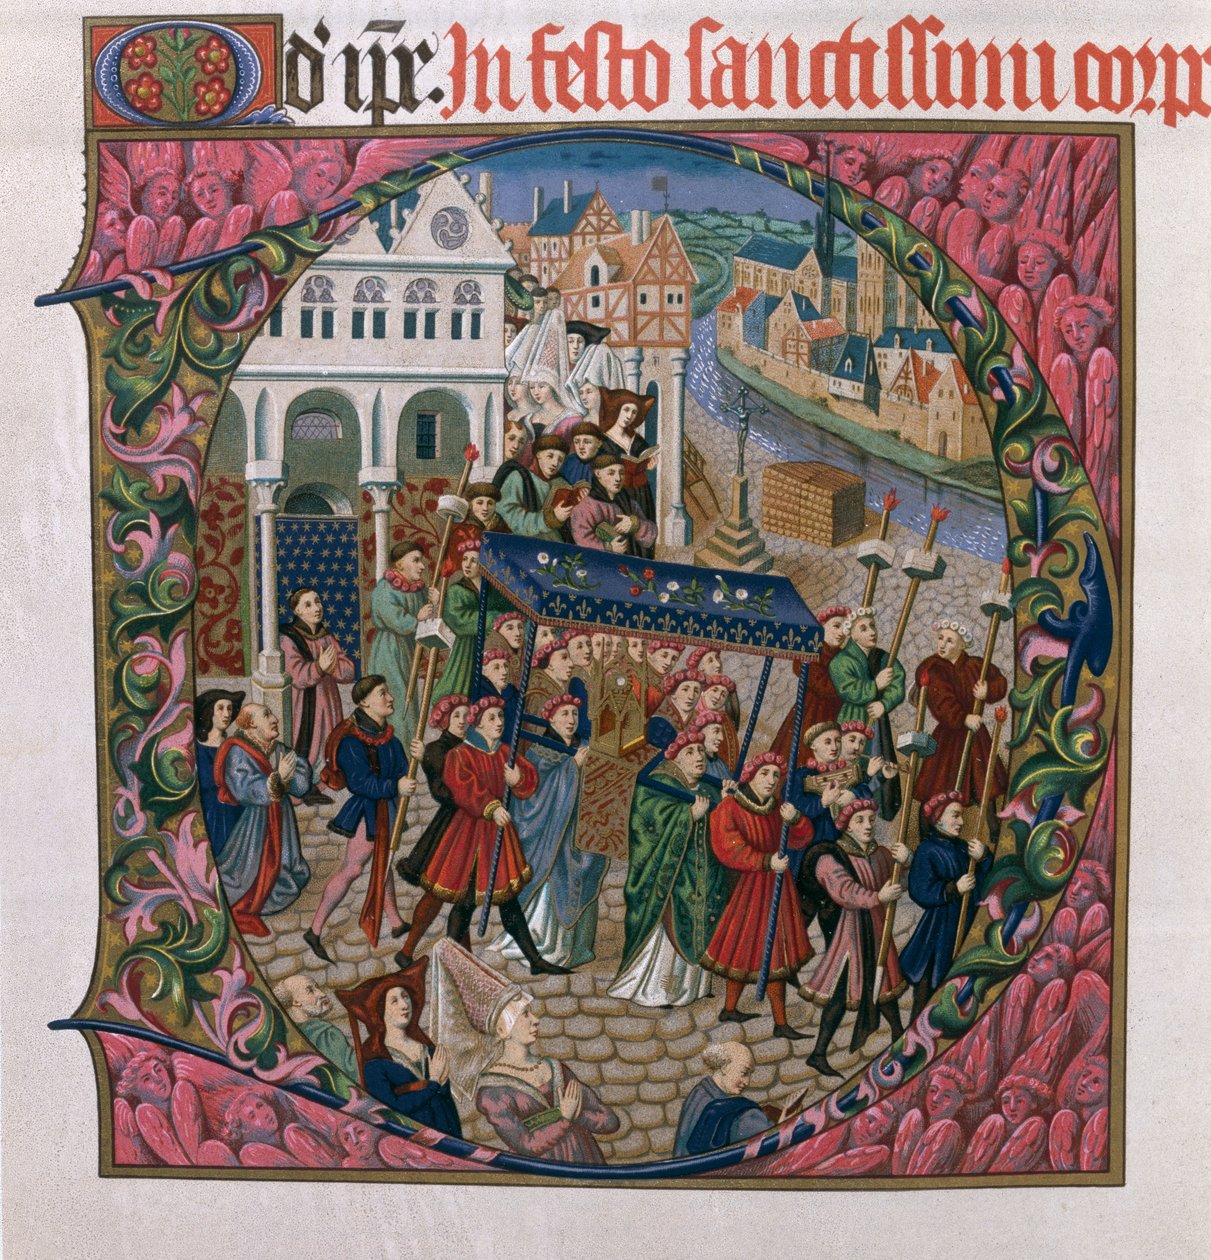 d' ip̄r. In festo sanctissimi corp